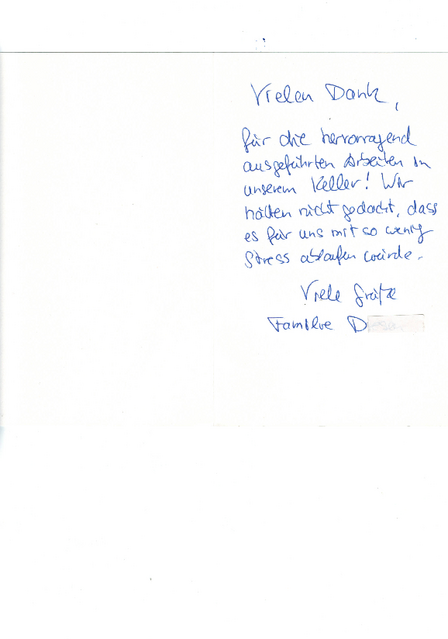 Vielen Dank,
für die hervorragend
ausgeführten Arbeiten in
unserem Keller! Wir
hätten nicht gedacht, dass
es für uns mit so wenig
Stress ablaufen würde.
Viele Grüße
Familie D